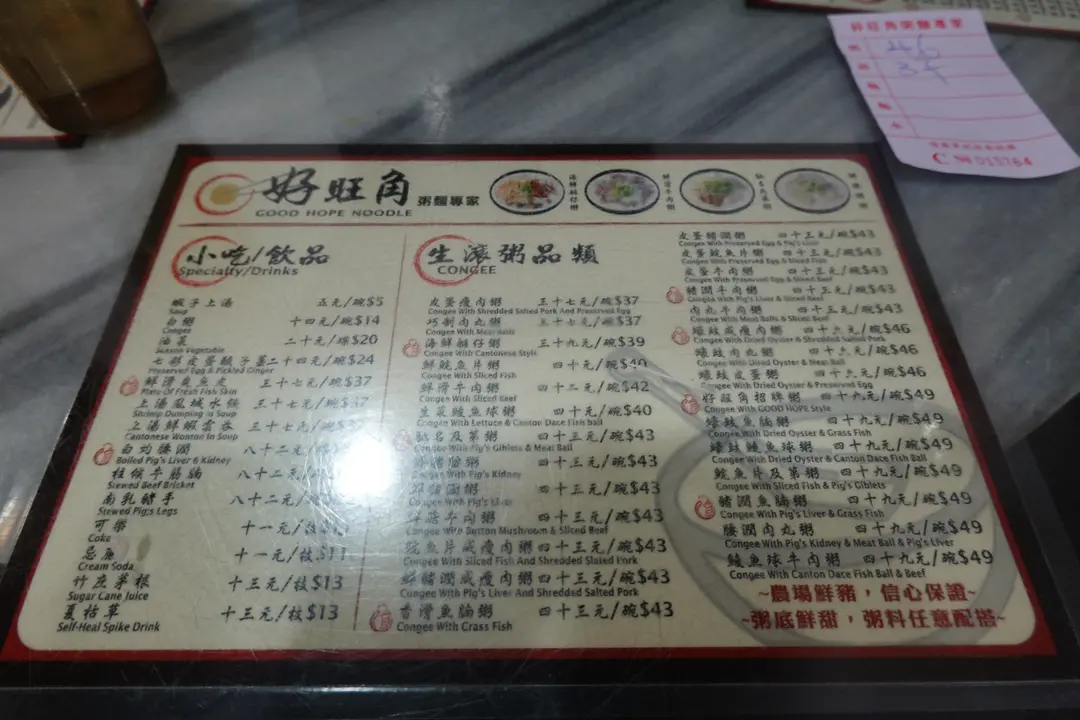 好旺角 粥麵專家
GOOD HOPE NOODLE
小吃/飲品
Specialty/Drinks
蝦子上湯 五元/碗$5
Soup
白粥 十四元/碗$14
Congee
油菜 二十元/碟$20
Season Vegetable
七彩皮蛋酸子薑 二十四元/碗$24
Preserved Egg & Pickled Ginger
鮮滑魚皮 三十七元/碗$37
Plate Of Fresh Fish Skin
上湯鳳城水餃 三十七元/碗$37
Shrimp Dumping in Soup
上湯鮮蝦雲吞 三十七元/碗
Cantonese Wonton In Soup
白灼腰潤 八十二元/碗
Boiled Pig's Liver & Kidney
柱侯牛筋腩 八十二元
Stewed Beef Brisket
南乳豬手 八十二元/碗
Stewed Pig;s Legs
可樂 十一元/枝$11
Coke
忌廉 十一元/枝$11
Cream Soda
竹庶茅根 十三元/枝$13
Sugar Cane Juice
夏枯草 十三元/枝$13
Self-Heal Spike Drink
生滾粥品類
CONGEE
皮蛋瘦肉粥 三十七元/碗$37
Congee With Shredded Salted Pork And Preserved Egg
巧制肉丸粥 三十七元/碗$37
Congee With Meat Balls
海鮮艇仔粥 三十九元/碗$39
Congee With Cantonese Style
鮮鯇魚片粥 四十元/碗$40
Congee With Sliced Fish
鮮滑牛肉粥 四十二元/碗$42
Congee With Sliced Beef
生菜鯪魚球粥 四十元/碗$40
Congee With Lettuce & Canton Dace Fish ball
馳名及第粥 四十三元/碗$43
Congee With Pig's Giblets & Meat Ball
粥 四十三元/碗$43
Congee With Pig's Kidney
鮮豬潤粥 四十三元/碗$43
Congee With Pig's Liver
鮮菇牛肉粥 四十三元/碗$43
Congee With Button Mushroom & Sliced Beef
鯇魚片咸瘦肉粥 四十三元/碗$43
Congee With Sliced Fish And Shredded Slated Pork
鮮豬潤咸瘦肉粥 四十三元/碗$43
Congee With Pig's Liver And Shredded Salted Pork
香滑魚腩粥 四十三元/碗$43
Congee With Grass Fish
皮蛋豬潤粥 四十三元/碗$43
Congee With Preserved Egg & Pig's Liver
皮蛋鯇魚片粥 四十三元/碗$43
Congee With Preserved Egg & Sliced Fish
皮蛋牛肉粥 四十三元/碗$43
Congee With Preserved Egg & Sliced Beef
豬潤牛肉粥 四十三元/碗$43
Congee With Pig's Liver & Sliced Beef
肉丸牛肉粥 四十三元/碗$43
Congee With Meat Balls & Sliced Beef
蠔豉咸瘦肉粥 四十六元/碗$46
Congee With Dried Oyster & Shredded Salted Pork
蠔豉肉丸粥 四十六元/碗$46
Congee With Dried Oyster & Meat Ball
蠔豉皮蛋粥 四十六元/碗$46
Congee With Dried Oyster & Preserved Egg
好旺角招牌粥 四十九元/碗$49
Congee With GOOD HOPE Style
蠔豉魚腩粥 四十九元/碗$49
Congee With Dried Oyster & Grass Fish
蠔豉鯪魚球粥 四十九元/碗$49
Congee With Dried Oyster & Canton Dace Fish Ball
鯇魚片及第粥 四十九元/碗$49
Congee With Sliced Fish & Pig's Giblets
豬潤魚腩粥 四十九元/碗$49
Congee With Pig's Liver & Grass Fish
腰潤肉丸粥 四十九元/碗$49
Congee With Pig's Kidney & Meat Ball & Pig's Liver
鯪魚球牛肉粥 四十九元/碗$49
Congee With Canton Dace Fish Ball & Beef
~農場鮮豬，信心保證~
~粥底鮮甜，粥料任意配搭~
好旺角粥麵專家
46
34
C № 013764